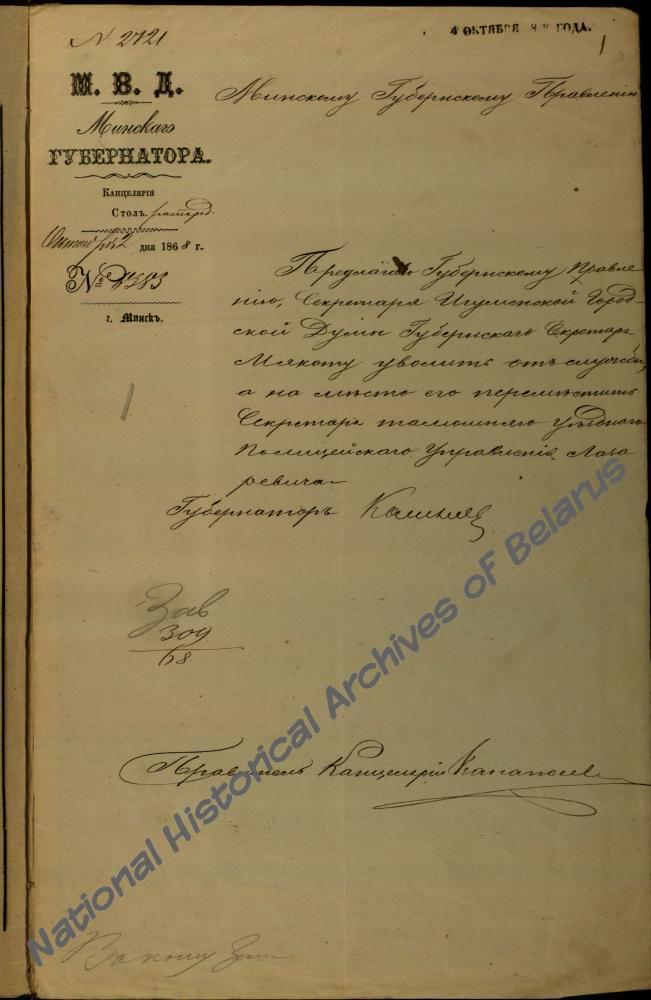 N 2721
4 ОКТЯБРЯ ГОДА.
1
М. В. Д.
Минскаго
ГУБЕРНАТОРА.
КАНЦЕЛЯРІЯ
СТОЛЪ распоряд.
Октября 2 дня 1868 г.
№ 8383
г. Минскъ.
Минскому Губернскому Правленію
Предлагаю Губернскому Правле-
нію, Секретаря Игуменской Город-
ской Думы Губернскаго Секретаря
Мякоту уволить отъ службы,
а на мѣсто его перемѣстить
Секретаря тамошняго уѣзднаго
Полицейскаго Управленія Лаза
ревича
Губернаторъ
Зав
309
68
Правитель Канцеляріи
National Historical Archives of Belarus